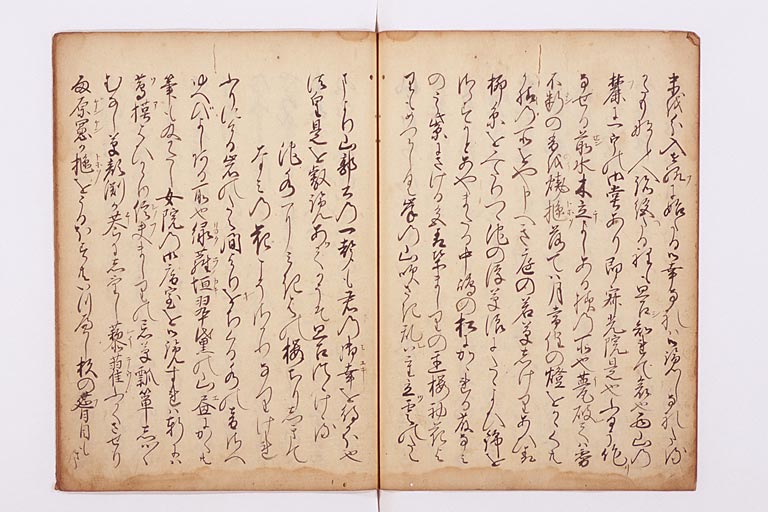 末へ分入せ給ふに始たる御幸なれは御覧しなれたる
かたもなく人跡絶たる程も思召知られて哀也西山の
麓に一宇の御堂あり即寂光院是也ふるう作
なせる前水木立よしある様の所也甍破ては霧
不断の香を焼樞落ては月常住の燈をかゝくとも
か様の所をや申へき庭の若草しけりあひ青
柳糸をみたりつゝ池の浮草浪にたゝよひ錦を
さらすかとあやまたる中嶋の松にかゝれる藤なみ
のうら紫にさける色青葉ましりの遅桜初花よ
りもめつらしく岸の山吹さき乱八重立雲のたえ
まより山郭公の一声も君の御幸を待かほ也
法皇是を叡覧あてかうそ思召つゝけける
池水にみきはの桜ちりしきて
なみの花こそさかりなりけれ
ふりにける岩のたえ間よりおちくる水の音さへ
ゆへひよしある所也緑蘿垣翠黛の山画にかくとも
筆も及かたし女院の御庵室を御覧すれは軒には
蔦槿はひかゝり信夫ましりの忘草瓢箪しは〳〵
むなし草顔渕か巷にしけし藜藋ふかくさせり
雨原憲か樞をうるほすともいつへし杉の葺目も